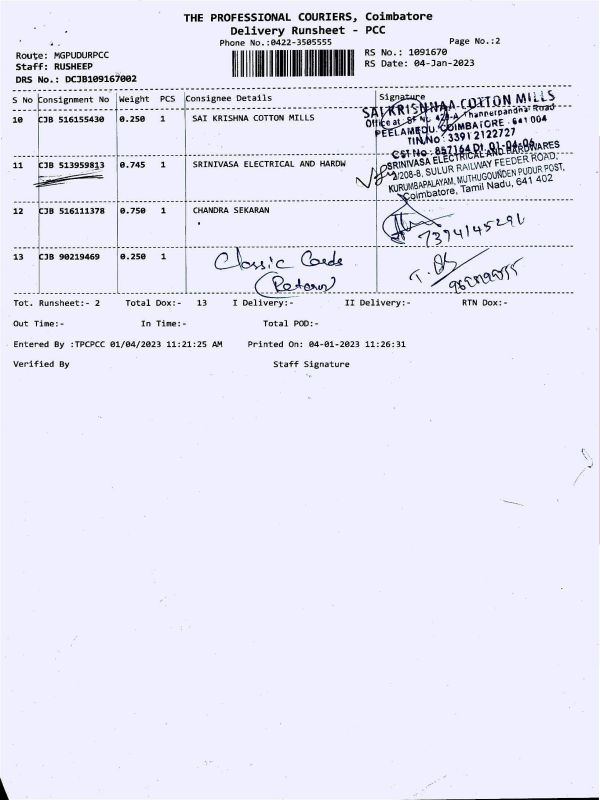 THE PROFESSIONAL COURIERS, Coimbatore
Delivery Runsheet - PCC
Phone No.:0422-3505555 Page No.:2
Route: MGPUDURPCC RS No.: 1091670
Staff: RUSHEEP RS Date: 04-Jan-2023
DRS No.: DCJB109167002
S No Consignment No Weight PCS Consignee Details Signature
10 CJB 516155430 0.250 1 SAI KRISHNA COTTON MILLS
SAI KRISHNAA COTTON MILLS
Office at SF No 428-A Thanneerpandhal Road
PEELAMEDU, COIMBATORE - 641 004
TIN No : 33912122727
CST No : 857164 Dt. 01-04-06
11 CJB 513959813 0.745 1 SRINIVASA ELECTRICAL AND HARDW
SRINIVASA ELECTRICAL AND HARDWARES
2/208-8, SULUR RAILWAY FEEDER ROAD,
KURUMBAPALAYAM, MUTHUGOUNDEN PUDUR POST,
Coimbatore, Tamil Nadu, 641 402
12 CJB 516111378 0.750 1 CHANDRA SEKARAN
7394145291
13 CJB 90219469 0.250 1 Classic Cards
(Return)
Tot. Runsheet:- 2 Total Dox:- 13 I Delivery:- II Delivery:- RTN Dox:-
Out Time:- In Time:- Total POD:-
Entered By :TPCPCC 01/04/2023 11:21:25 AM Printed On: 04-01-2023 11:26:31
Verified By Staff Signature